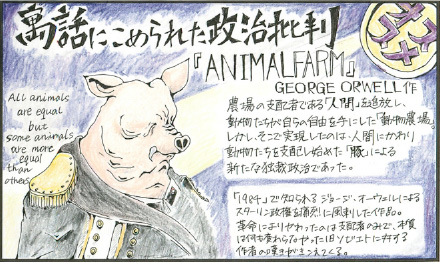 寓話にこめられた政治批判
オススメ
『ANIMALFARM』
GEORGE ORWELL作
All animals
are equal
but
some animals
we more
equal
than
others
農場の支配者である「人間」を追放し、
動物たちが自らの自由を手にした「動物農場」
しかし、そこで実現したのは、人間にかわり
動物たちを支配し始めた「豚」による
新たな独裁政治であった。
「1984」で知られるジョージ・オーウェルによる
スターリン政権を痛烈に風刺した作品。
革命によりかわったのは支配者のみで、本質
は何も変わらなかった旧ソビエトに対する
作者の嘆きがきこえてくる。